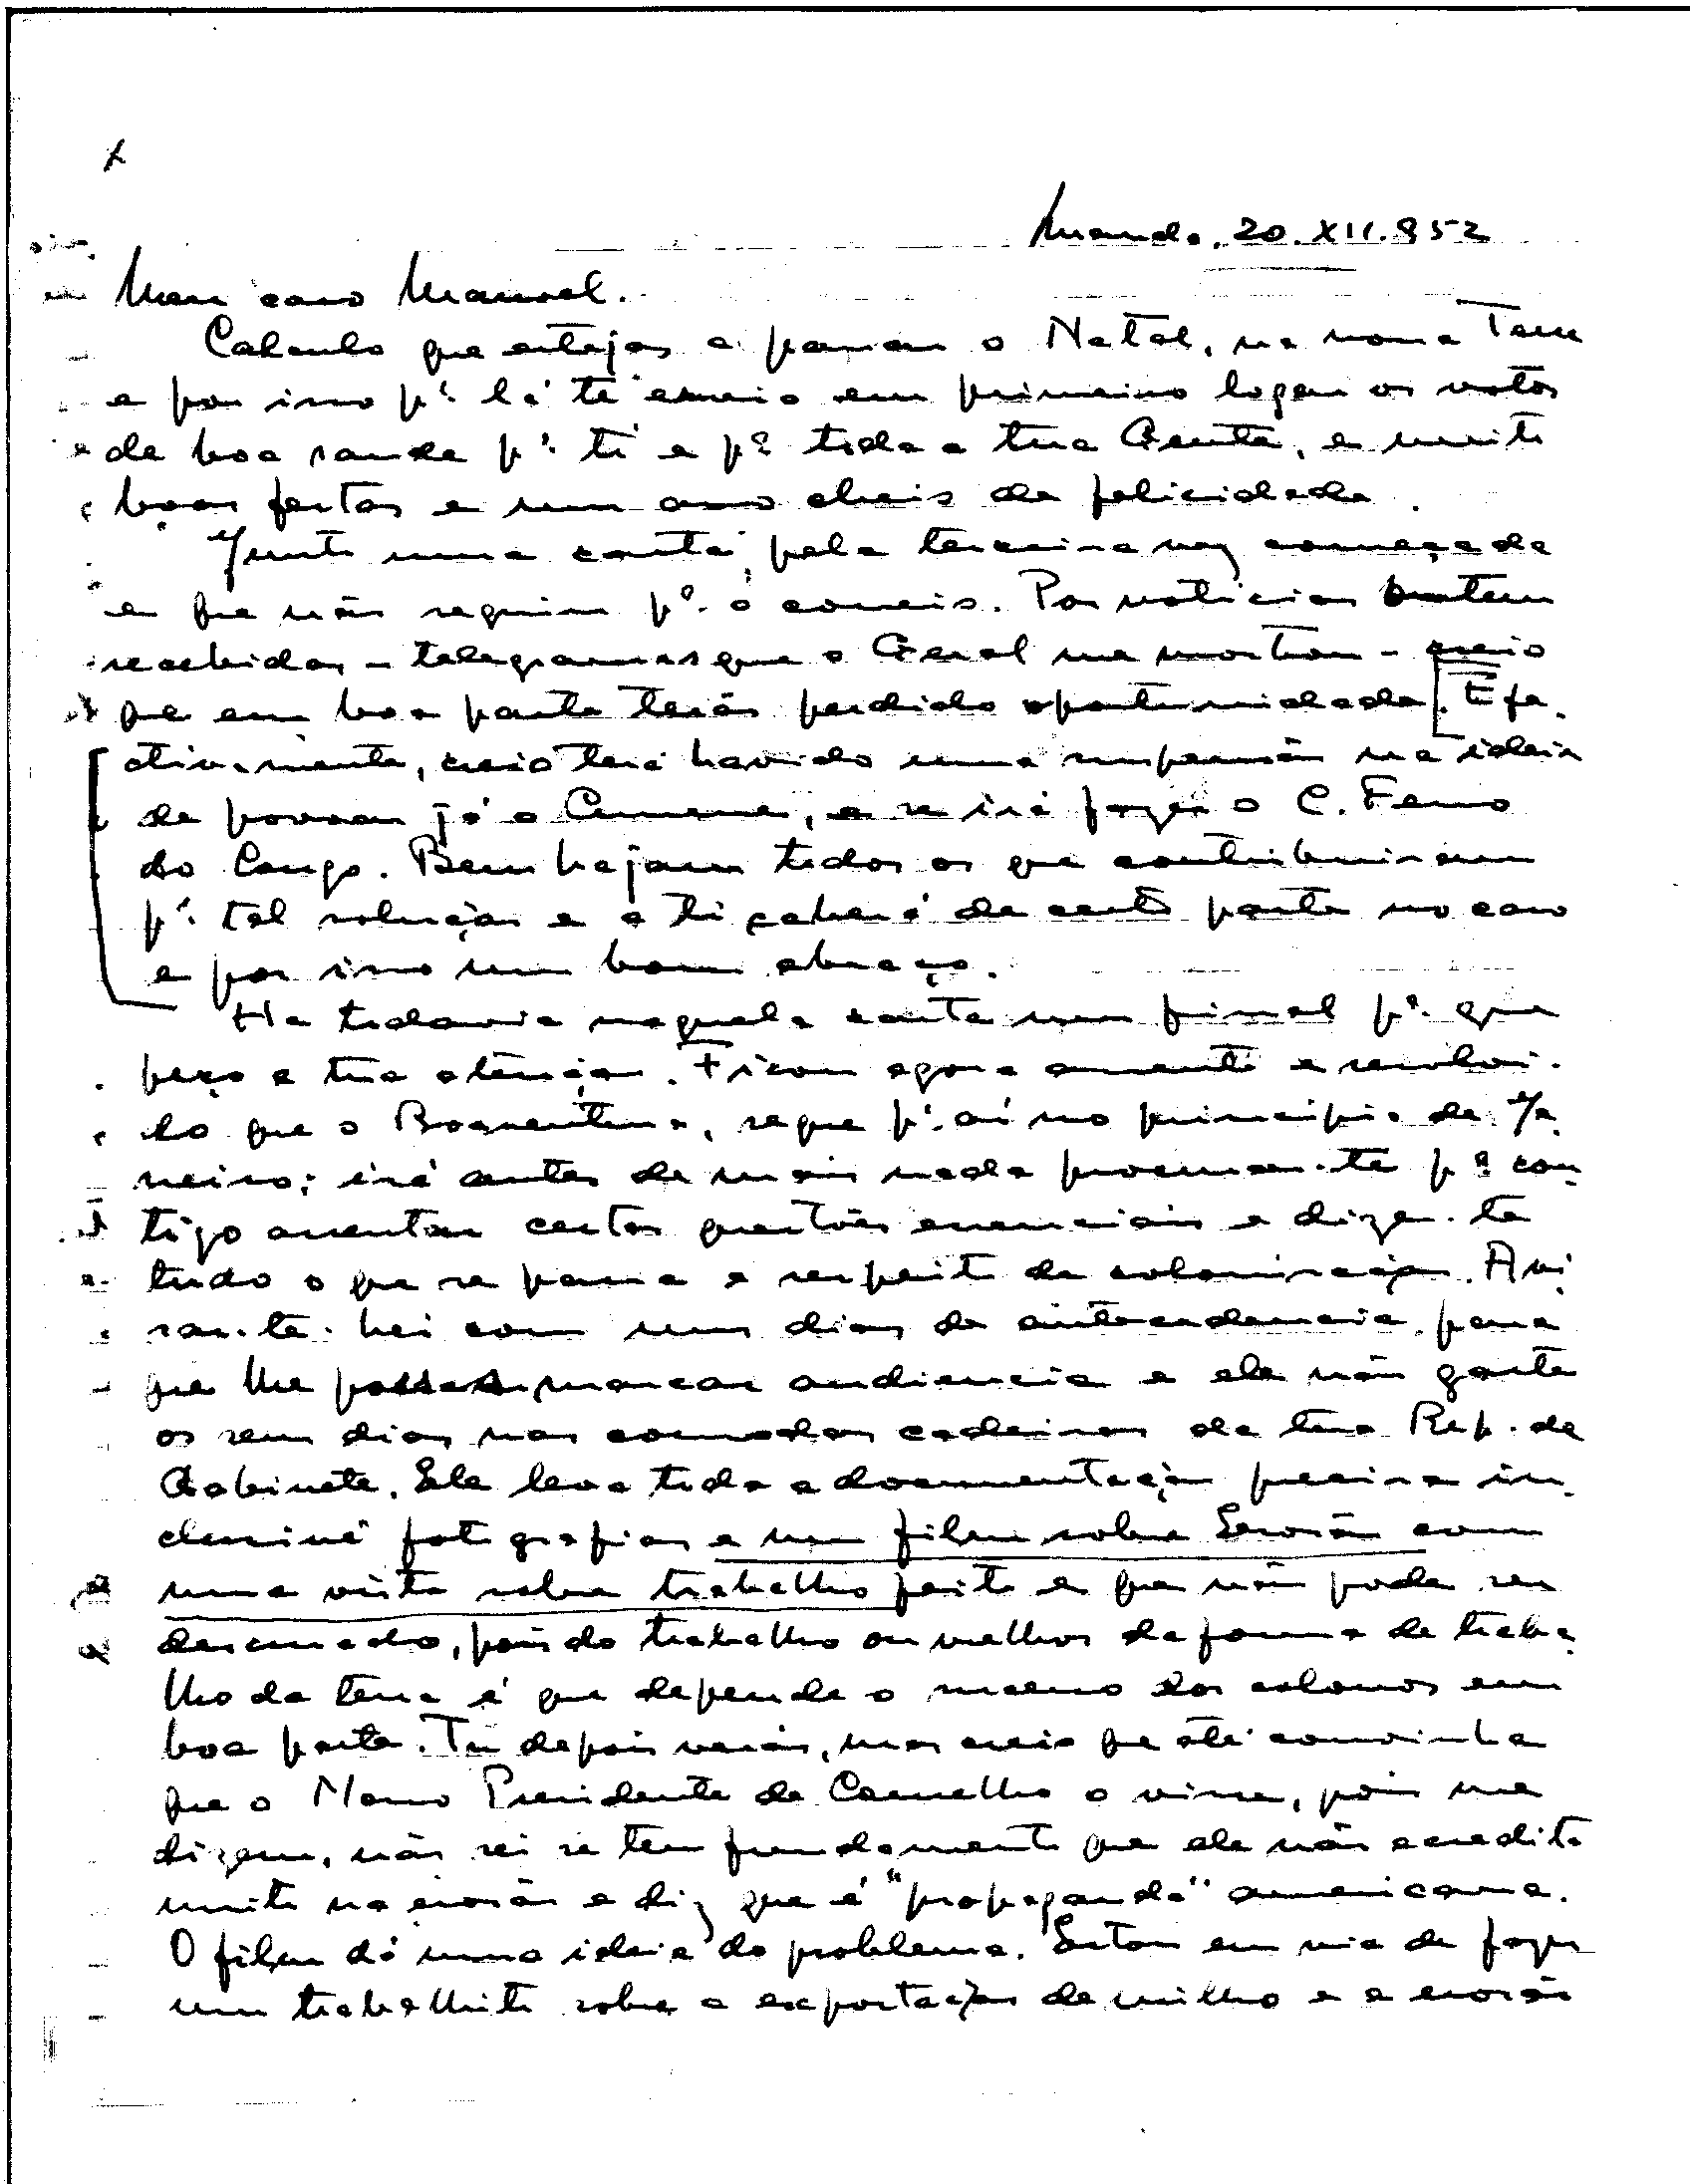 Luanda, 20.XII.952
Meu caro Manuel.
Calculo que estejas a passar o Natal, na nossa Terra
e por isso pª lá te envio em primeiro logar os votos
de boa saude pª ti e pª toda a tua Gente, e muito
boas festas e um ano cheio de felicidade.
Junto uma carta, pela terceira vez começada
e que não seguiu pª o correio. Por noticias ontem
recebidas - telegramas que o Geral me mostrou - creio
que em boa parte terão perdido oportunidade. Efe-
ctivamente, creio terá havido uma suspensão na ideia
de povoar já o Cunene, e se irá fazer o C. Ferro
do Congo. Bem hajam todos os que contribuiram
pª tal solução e a ti caberá de certo parte no caso
e por isso um bom abraço.
Ha todavia naquela carta um final pª que
peço a tua atenção. Ficou agora assente e resolvi-
do que o Boaventura, segue pª aí no principio de Ja-
neiro; irá antes de mais nada procurar-te pª con-
tigo assentar certas questões essenciais e dizer-te
tudo o que se passa a respeito de colonisação. Avi-
sar-te-hei com uns dias de antecedencia, para
que lhe possas marcar audiencia e ele não gaste
os seus dias nas comodas cadeiras da tua Rep. de
Gabinete. Ele leva toda a documentação precisa in-
clusivé fotografias e um film sobre Erosão com
uma vista sobre trabalho feito e que não pode ser
descurado, pois do trabalho ou melhor da forma de traba-
lho da terra é que depende o sucesso dos colonos em
boa parte. Tu depois verás, mas creio que até convinha
que o Nosso Presidente do Conselho o visse, pois me
dizem, não sei se tem fundamento que ele não acredita
muito na erosão e diz que é "propaganda" americana.
O film dá uma ideia do problema. Estou em via de fazer
um trabalhito sobre a exportação de milho e a erosão